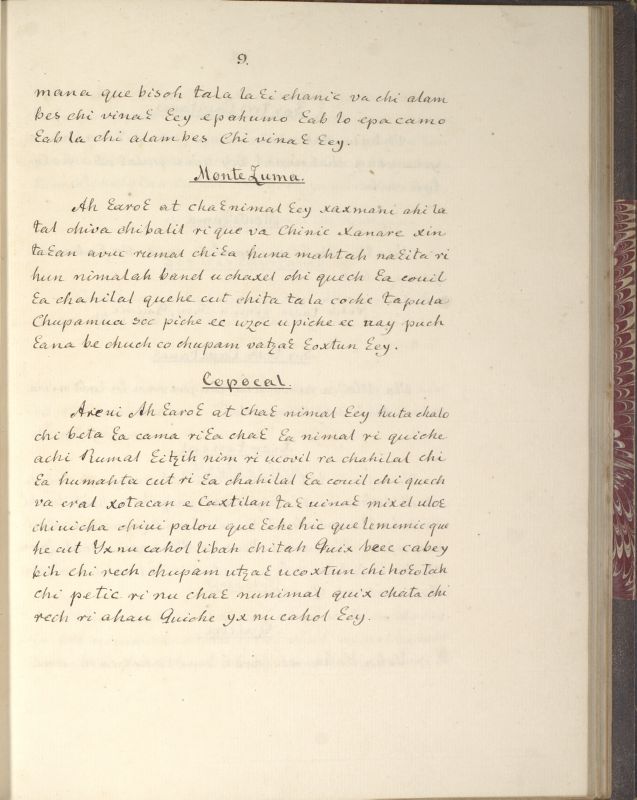 9.
mana que bisoh tala laƐi chanic va chi alam
bes chi vinaƐ Ɛey epahumo Ɛab lo epacamo
Ɛab la chi alambes Chi vinaƐ Ɛey.
MonteZuma.
Ah ƐaroƐ at chaƐnimal Ɛey xaxmani ahila
tal chiva chibalil ri que va Chinic Xanare xin
taƐan avuc rumal chiƐa huna mahtah naƐita ri
hun nimalah banel uchaxel chi quech Ɛa couil
Ɛa chahilal quehe cut chita tala coche tapula
Chupamua soc piche ec uzoc upiche ec uay puch
Ɛana be chuch co chupam vatzaƐ Ɛoxtun Ɛey.
Copocal.
Arcui Ah ƐaroƐ at ChaƐ nimal Ɛey huta chalo
chi beta Ɛa cama riƐa chaƐ Ɛa nimal ri quiche
achi Rumal Ɛitzih nim ri ucovil ra chahilal chi
Ɛa humahta cut ri Ɛa chahilal Ɛa couil chi quech
va cral xotacan e Caxtilan taƐ uinaƐ mixel uloƐ
chiuicha chiui palou que Ɛehe hic que lememic que
he cut Yx nu cahol libah chitah Quix beec cabey
bih chi rech chupam utzaƐ ucoxtun chihoƐotah
chi petic ri nu chaƐ nunimal quix chata chi
rech ri ahau Quiche yx nu cahol Ɛey.